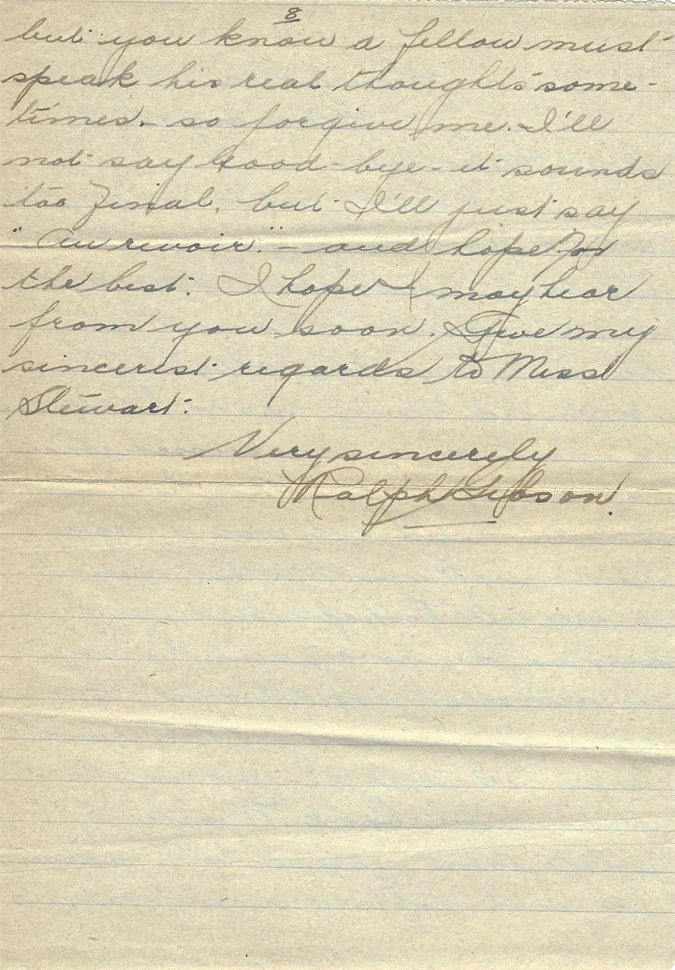 8
but you know a fellow must
speak his real thoughts some-
times. so forgive me. I'll
not say good-bye - it sounds
too final, but I'll just say
"au revoir." - and hope for
the best. I hope I may hear
from you soon. Give my
sincerest regards to Miss
Stewart.
Very sincerely
Ralph Gibson.